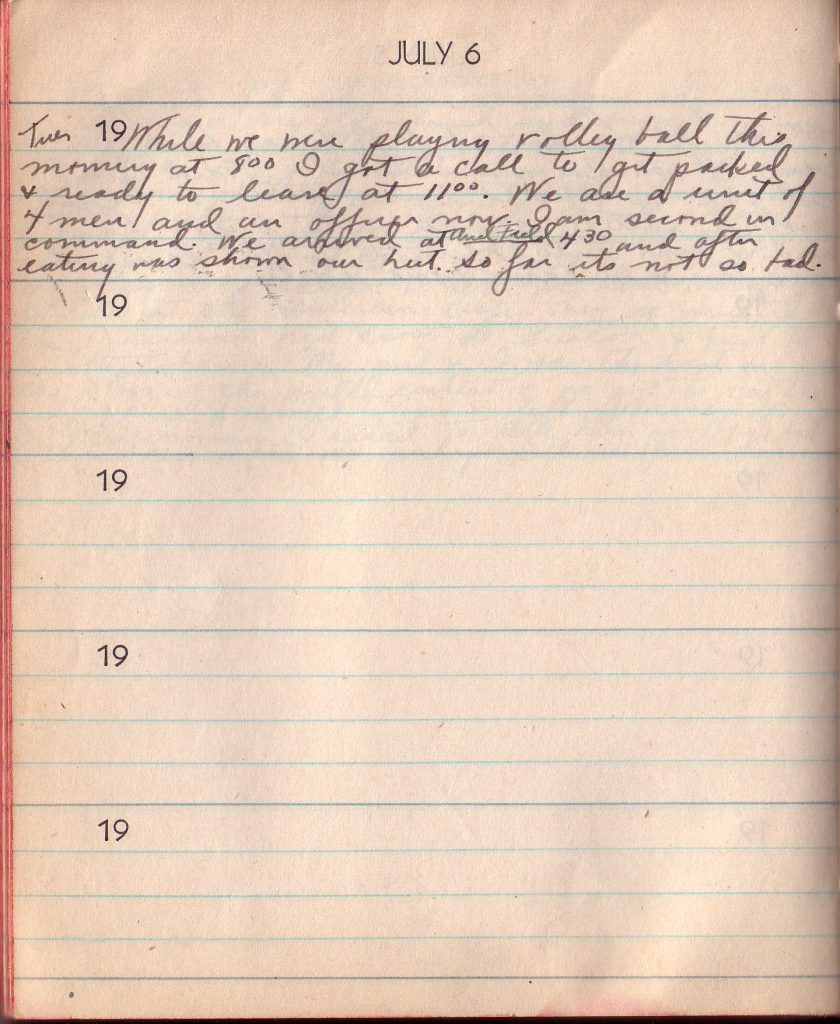 JULY 6
Tues 19 While we were playing volley ball this
morning at 800 I got a call to get packed
& ready to leave at 1100. We are a unit of
4 men and an officer now. I am second in
command. We arrived at Field 430 and after
eating was shown our hut. So far its not so bad.
19
19
19
19